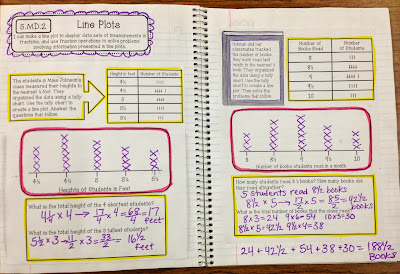 5.MD.2
Line Plots
I can make a line plot to display data sets of measurements in
fractions, and use fraction operations to solve problems
involving information presented in line plots.
The students in Miss Johnson's
class measured their heights to
the nearest ¼ foot. They
organized the data using a tally
chart. Use the tally chart to
create a line plot. Answer the
questions that follow.
Height in feet
Number of Students
4¼
4½
5
5¼
5½
4¼ 4½ 5 5¼ 5½
Heights of Students in Feet
What is the total height of the 4 shortest students?
4¼ x 4 → 17/4 x 4 = 68/4 = 17 feet
What is the total height of the 3 tallest students?
5½ x 3 → 11/2 x 3 = 33/2 = 16½ feet
Hannah and her
classmates tracked
the number of books
they each read last
month. They
organized the data
using a tally chart.
Use the tally chart
to create a line
plot. Then solve the
problems that follow.
Number of
Books Read
Number of
Students
8
8½
9
9½
10
8 8½ 9 9½ 10
Number of Books Students read in a month
How many students read 8½ books? How many books did
they read altogether?
5 students read 8½ books
8½ x 5 → 17/2 x 5 = 85/2 = 42½ books
What is the total number of books that the class read?
8x3=24 9x6=54 10x3=30
8½x5=42½ 9½x4=38
24+42½+54+38+30=188½
Books